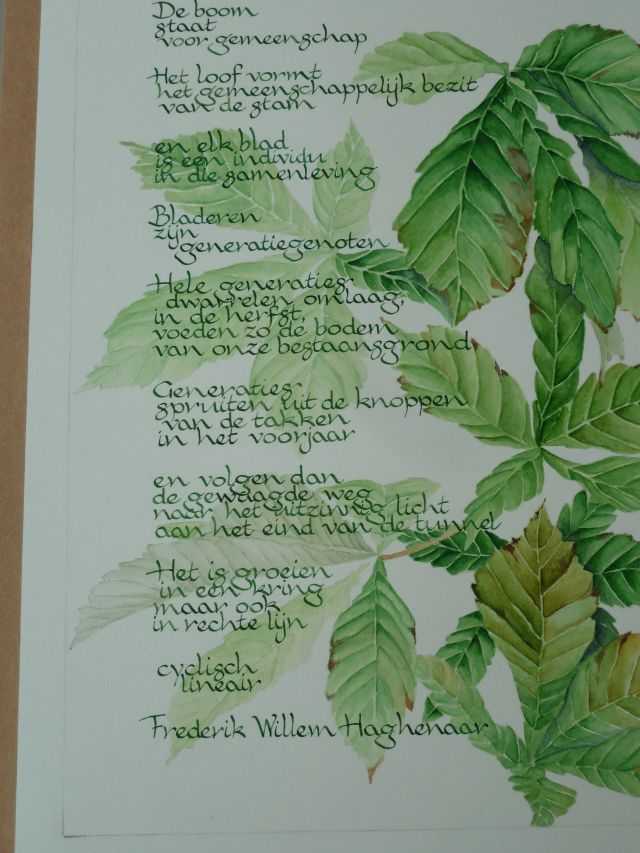 De boom
staat
voor gemeenschap
Het loof vormt
het gemeenschappelijk bezit
van de stam
en elk blad
is een individu
in die samenleving
Bladeren
zijn
generatiegenoten
Hele generaties
dwarrelen omlaag,
in de herfst,
voeden zo de bodem
van onze bestaansgrond
Generaties
spruiten uit de knoppen
van de takken
in het voorjaar
en volgen dan
de gewaagde weg
naar het uitzinnig licht
aan het eind van de tunnel
Het is groeien
in een kring
maar ook
in rechte lijn
cyclisch
lineair
Frederik Willem Haghenaar